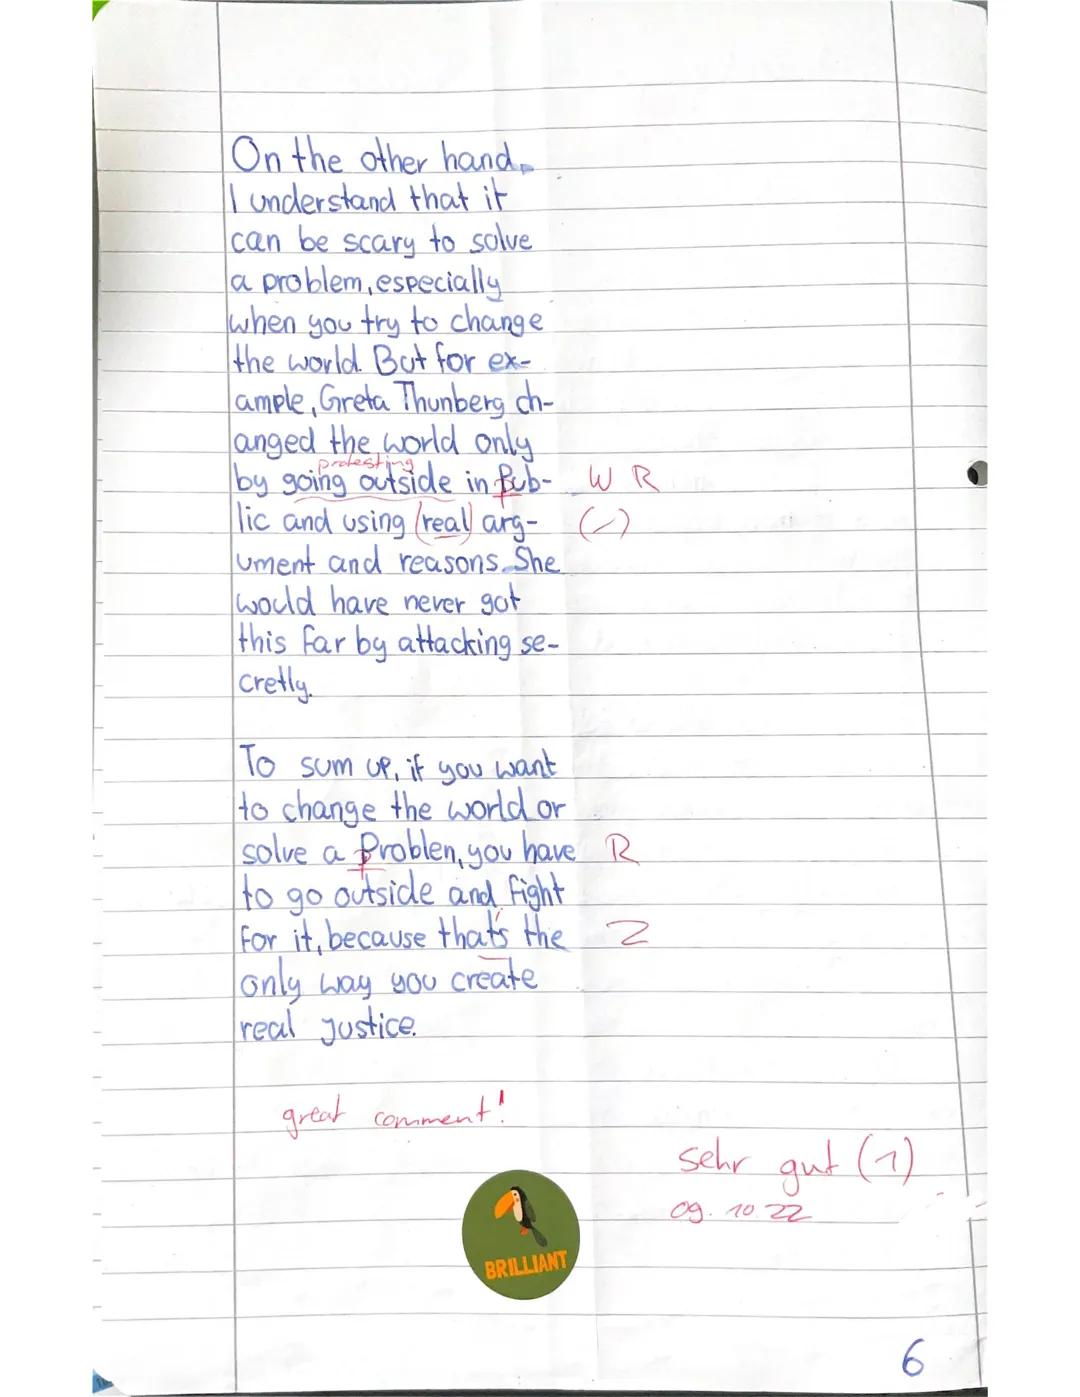 On the other hand,
I understand that it
can be scary to solve
a problem, especially
when you try to change
the world. But for ex-
ample, Greta Thunberg ch-
anged the world only
protesting
by going outside in Pub- W R
lic and using (real) arg- (✓)
ument and reasons. She
would have never got
this far by attacking se-
cretly.
To sum up, if you want
to change the world or
solve a Problen, you have R
to go outside and fight
for it, because that's the Z
only way you create
real justice.
great comment!
sehr gut (1)
09.10.22
BRILLIANT
6